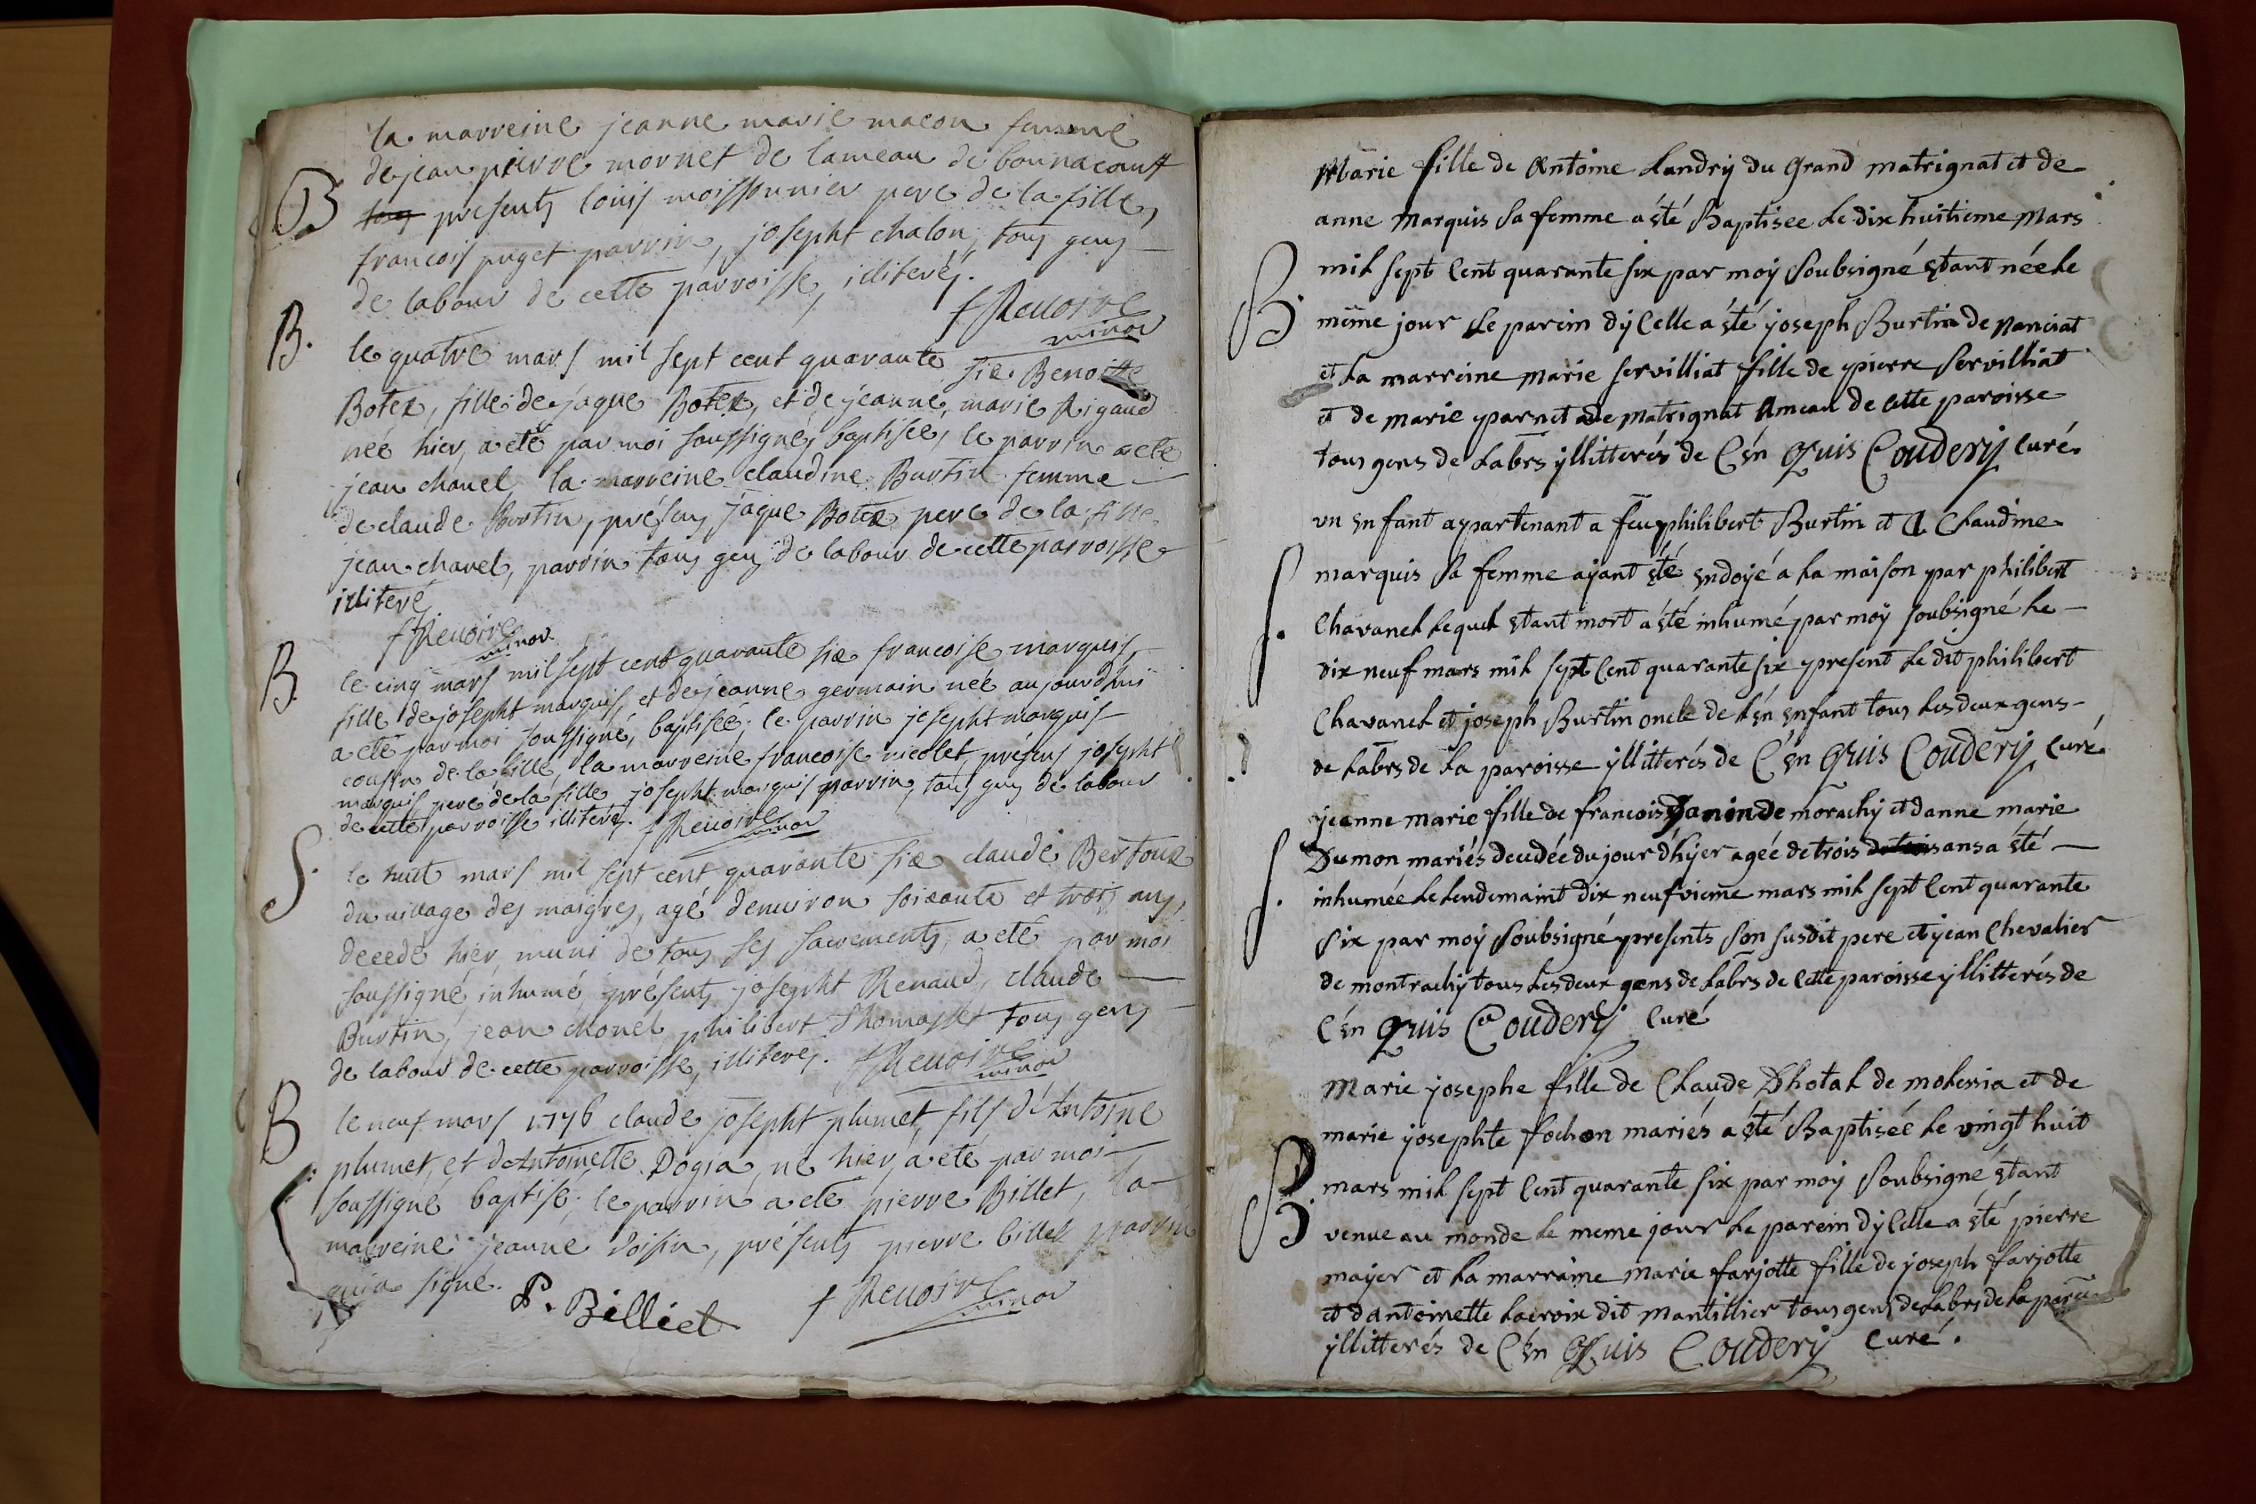 la marreine jeanne marie macon femme
de jean pierre mornet de lameau de bonnacourt
B tous presents louis moissonnier pere de la fille,
francois puget parrin, josepht chalon, tous gens
de labour de cette parroisse, illiterés.
f Renoire
minor
B. le quatre mars mil sept cent quarante six Benoitte
Botex, fille de jaque Botex, et de jeanne marie Rigaud
née hier, a eté par moi soussigné, baptisée, le parrin a eté
jean chanel, la marreine claudine Burtin femme
de claude Burtin, présens jaque Botex pere de la fille
jean chanel, parrin tous gens de labour de cette parroisse
illiteré
f Renoire
minor
B. le cinq mars mil sept cent quarante six francoise marquis,
fille de josepht marquis, et de jeanne germain née aujourdhui
a eté par moi soussigné, baptisée; le parrin josepht marquis
cousin de la fille, la marreine francoise nicolet, présens josepht
marquis pere de la fille josepht marquis parrin, tous gens de labour
de cette parroisse illiterés. f Renoire
minor
S. le huit mars mil sept cent quarante six claude Bertoux
du village des maigres, agé denuiron soixante et trois ans,
decede hier, muni de tous ses sacrements, a eté par moi
soussigné inhumé présents josepht Renaud, claude
Burtin, jean chanel, philibert Thomasset tous gens
de labour de cette parroisse, illiterés. f Renoire
minor
B le neuf mars 1746 claude josepht plumet, fils d'Antoine
plumet, et dAntoinette Dogia, né hier, a eté par moi
soussigné baptisé; le parrin a eté pierre Billet, la
marreine jeanne Voisin, présents pierre billet parrin
qui a signé.
P. Billiet f Renoire
minor
Marie fille de Antoine Landry du Grand matrignat et de
anne Marquis sa femme a été Baptisee le dix huitieme Mars
B. mil sept cent quarante six par moy soubsigné étant née le
même jour le parein dycelle a été joseph Burtin de nanciat
et la marreine marie servilliat fille de pierre servilliat
et de marie parnet de matrignat ameau de cette paroisse
tous gens de labrs yllitterés de C én Quis Coudery curé
un enfant appartenant a feu philibert Burtin et a Claudine
marquis sa femme ayant été endoyé a la maison par philibert
S. Chavanel lequel étant mort a été inhumé par moy soubsigné le
dix neuf mars mil sept cent quarante six present le dit philibert
Chavanel et joseph Burtin oncle de lén enfant tous les deux gens
de labrs de la paroisse yllitterés de C én Quis Coudery curé
jeanne marie fille de francois Janin de morachy et danne marie
Dumon mariés decedée du jour dhyer agée de trois ans a été
S. inhumée le lendemaint dix neufvieme mars mil sept cent quarante
six par moy soubsigné presents son susdit pere et jean Chevalier
de montrachy tous les deux gens de labrs de cette paroisse yllitterés de
C én Quis Coudery curé
Marie josephe fille de Claude Chotal de molessia et de
marie josephte fochon mariés a été Baptiséé le vingt huit
B. mars mil sept cent quarante six par moy soubsigné étant
venue au monde le meme jour le parein dycelle a été pierre
mayer et la marraine marie farjotte fille de joseph farjotte
et dantoinette lacroix dit mantillier tous gens de labrs de la
yllitterés de C én Quis Coudery curé.